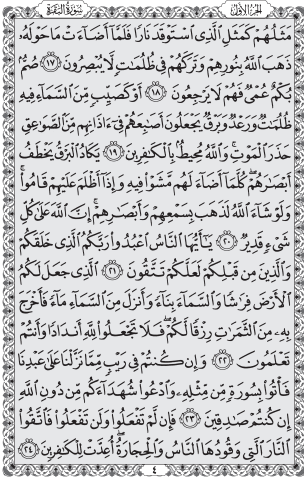 الجزء الأول سورة البقرة
مَثَلُهُمْ كَمَثَلِ الَّذِي اسْتَوْقَدَ نَارًا فَلَمَّا أَضَاءَتْ مَا حَوْلَهُ
ذَهَبَ اللَّهُ بِنُورِهِمْ وَتَرَكَهُمْ فِي ظُلُمَاتٍ لَّا يُبْصِرُونَ ﴿١٧﴾ صُمٌّ
بُكْمٌ عُمْيٌ فَهُمْ لَا يَرْجِعُونَ ﴿١٨﴾ أَوْ كَصَيِّبٍ مِّنَ السَّمَاءِ فِيهِ
ظُلُمَاتٌ وَرَعْدٌ وَبَرْقٌ يَجْعَلُونَ أَصَابِعَهُمْ فِي آذَانِهِم مِّنَ الصَّوَاعِقِ
حَذَرَ الْمَوْتِ ۚ وَاللَّهُ مُحِيطٌ بِالْكَافِرِينَ ﴿١٩﴾ يَكَادُ الْبَرْقُ يَخْطَفُ
أَبْصَارَهُمْ ۖ كُلَّمَا أَضَاءَ لَهُم مَّشَوْا فِيهِ وَإِذَا أَظْلَمَ عَلَيْهِمْ قَامُوا ۚ
وَلَوْ شَاءَ اللَّهُ لَذَهَبَ بِسَمْعِهِمْ وَأَبْصَارِهِمْ ۚ إِنَّ اللَّهَ عَلَىٰ كُلِّ
شَيْءٍ قَدِيرٌ ﴿٢٠﴾ يَا أَيُّهَا النَّاسُ اعْبُدُوا رَبَّكُمُ الَّذِي خَلَقَكُمْ
وَالَّذِينَ مِن قَبْلِكُمْ لَعَلَّكُمْ تَتَّقُونَ ﴿٢١﴾ الَّذِي جَعَلَ لَكُمُ
الْأَرْضَ فِرَاشًا وَالسَّمَاءَ بِنَاءً وَأَنزَلَ مِنَ السَّمَاءِ مَاءً فَأَخْرَجَ
بِهِ مِنَ الثَّمَرَاتِ رِزْقًا لَّكُمْ ۖ فَلَا تَجْعَلُوا لِلَّهِ أَندَادًا وَأَنتُمْ
تَعْلَمُونَ ﴿٢٢﴾ وَإِن كُنتُمْ فِي رَيْبٍ مِّمَّا نَزَّلْنَا عَلَىٰ عَبْدِنَا
فَأْتُوا بِسُورَةٍ مِّن مِّثْلِهِ وَادْعُوا شُهَدَاءَكُم مِّن دُونِ اللَّهِ
إِن كُنتُمْ صَادِقِينَ ﴿٢٣﴾ فَإِن لَّمْ تَفْعَلُوا وَلَن تَفْعَلُوا فَاتَّقُوا
النَّارَ الَّتِي وَقُودُهَا النَّاسُ وَالْحِجَارَةُ ۖ أُعِدَّتْ لِلْكَافِرِينَ ﴿٢٤﴾
٤